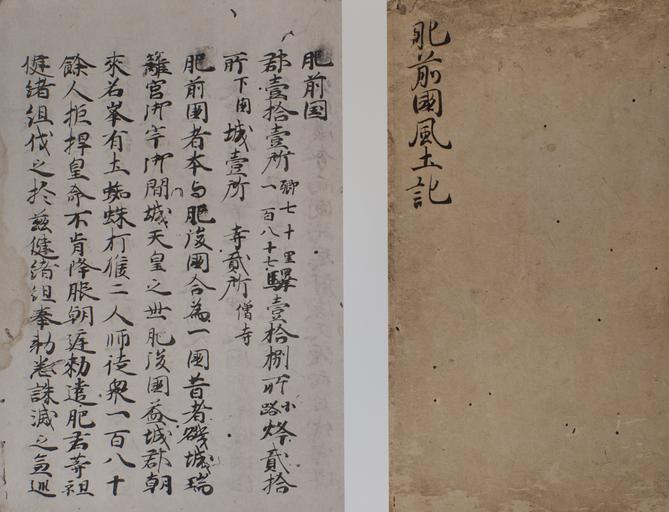 肥前國風土記
肥前国
郡壹拾壹所 郷七十里一百八十七 驛壹拾捌所 小路 烽貳拾
所 下國 城壹所 寺貳所 僧寺
肥前國者本与肥後國合為一國昔者磯城瑞
籬宮御宇御間城天皇之世肥後國益城郡朝
來名峯有土蜘蛛打猴二人帥徒衆一百八十
餘人拒捍皇命不肯降服朝庭勅遣肥君等祖
健緒組伐之於茲健緒組奉勅悉誅滅之兼巡